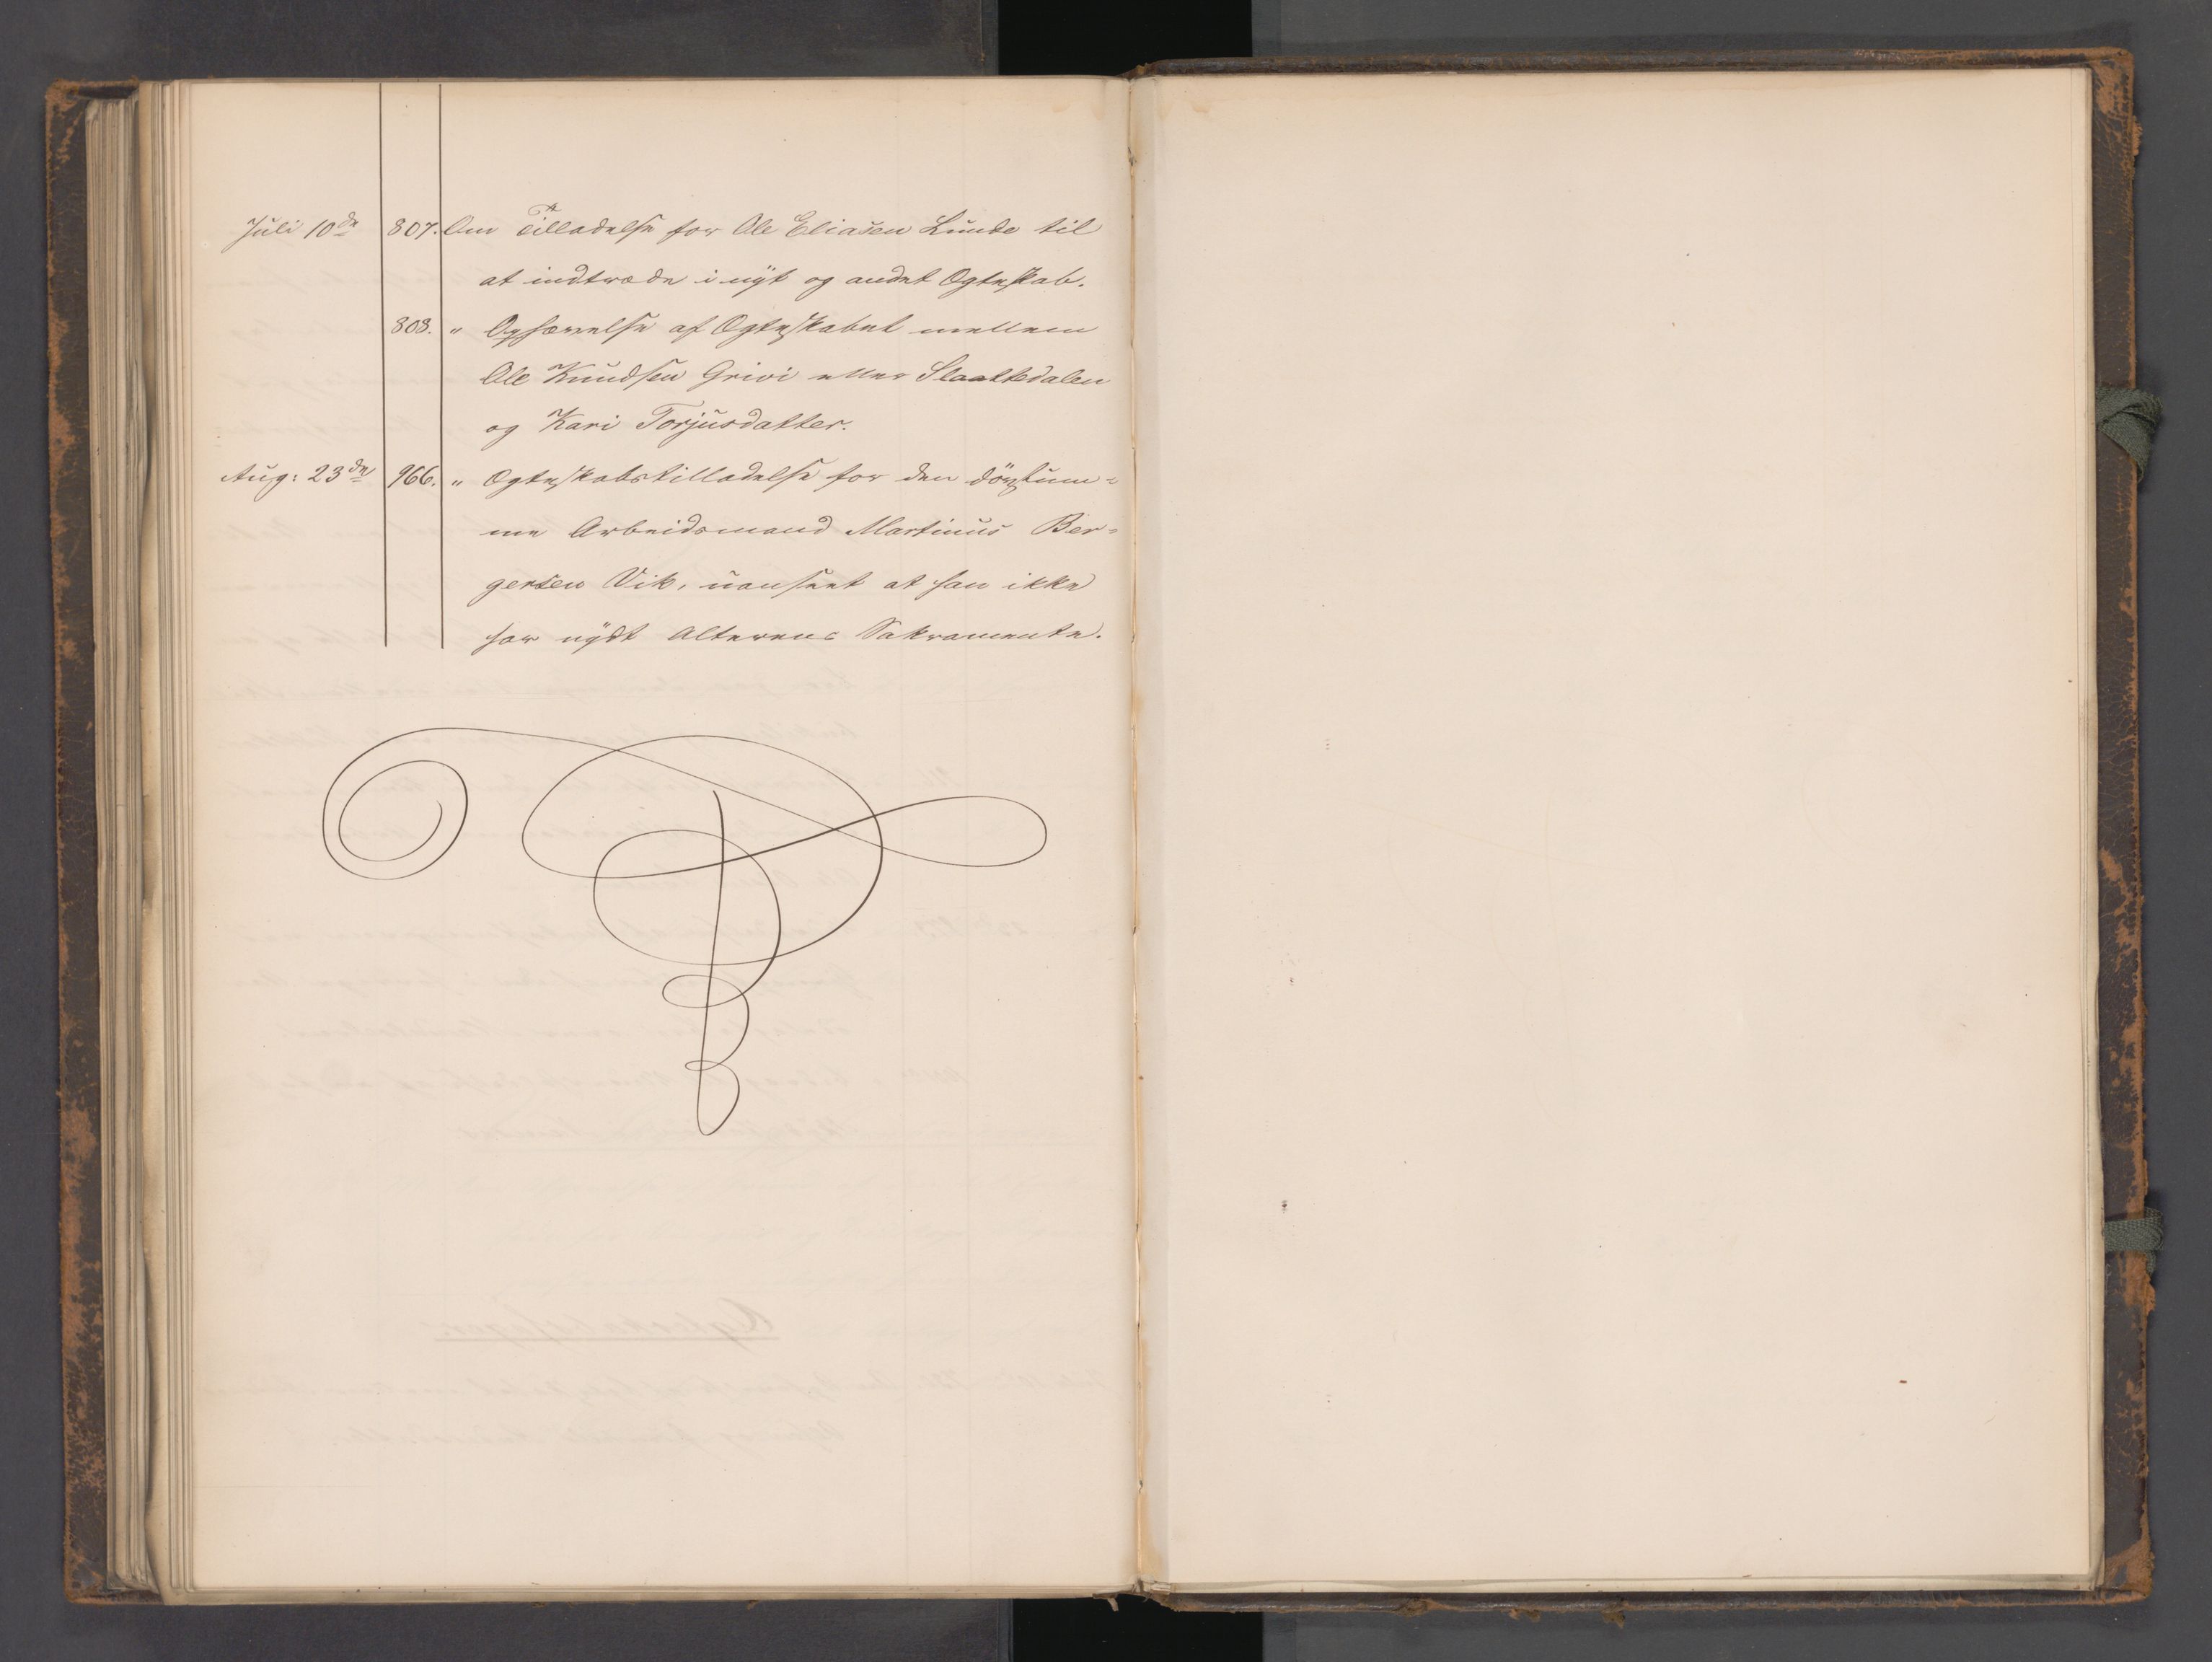 Juli 10de 807. Om Tilladelse for Ole Eliasen Lunde til
at indtræde i nyt og andet Ægteskab.
808. " Ophævelse af Ægteskabet mellem
Ole Knudsen Grivi eller Slaattedalen
og Kari Torjusdatter.
Aug: 23de 966. " Ægteskabstilladelse for den døvstum=
me Arbeidsmand Martinus Ber=
gersen Vik, uanseet at han ikke
har nydt Alterens Sakramente.